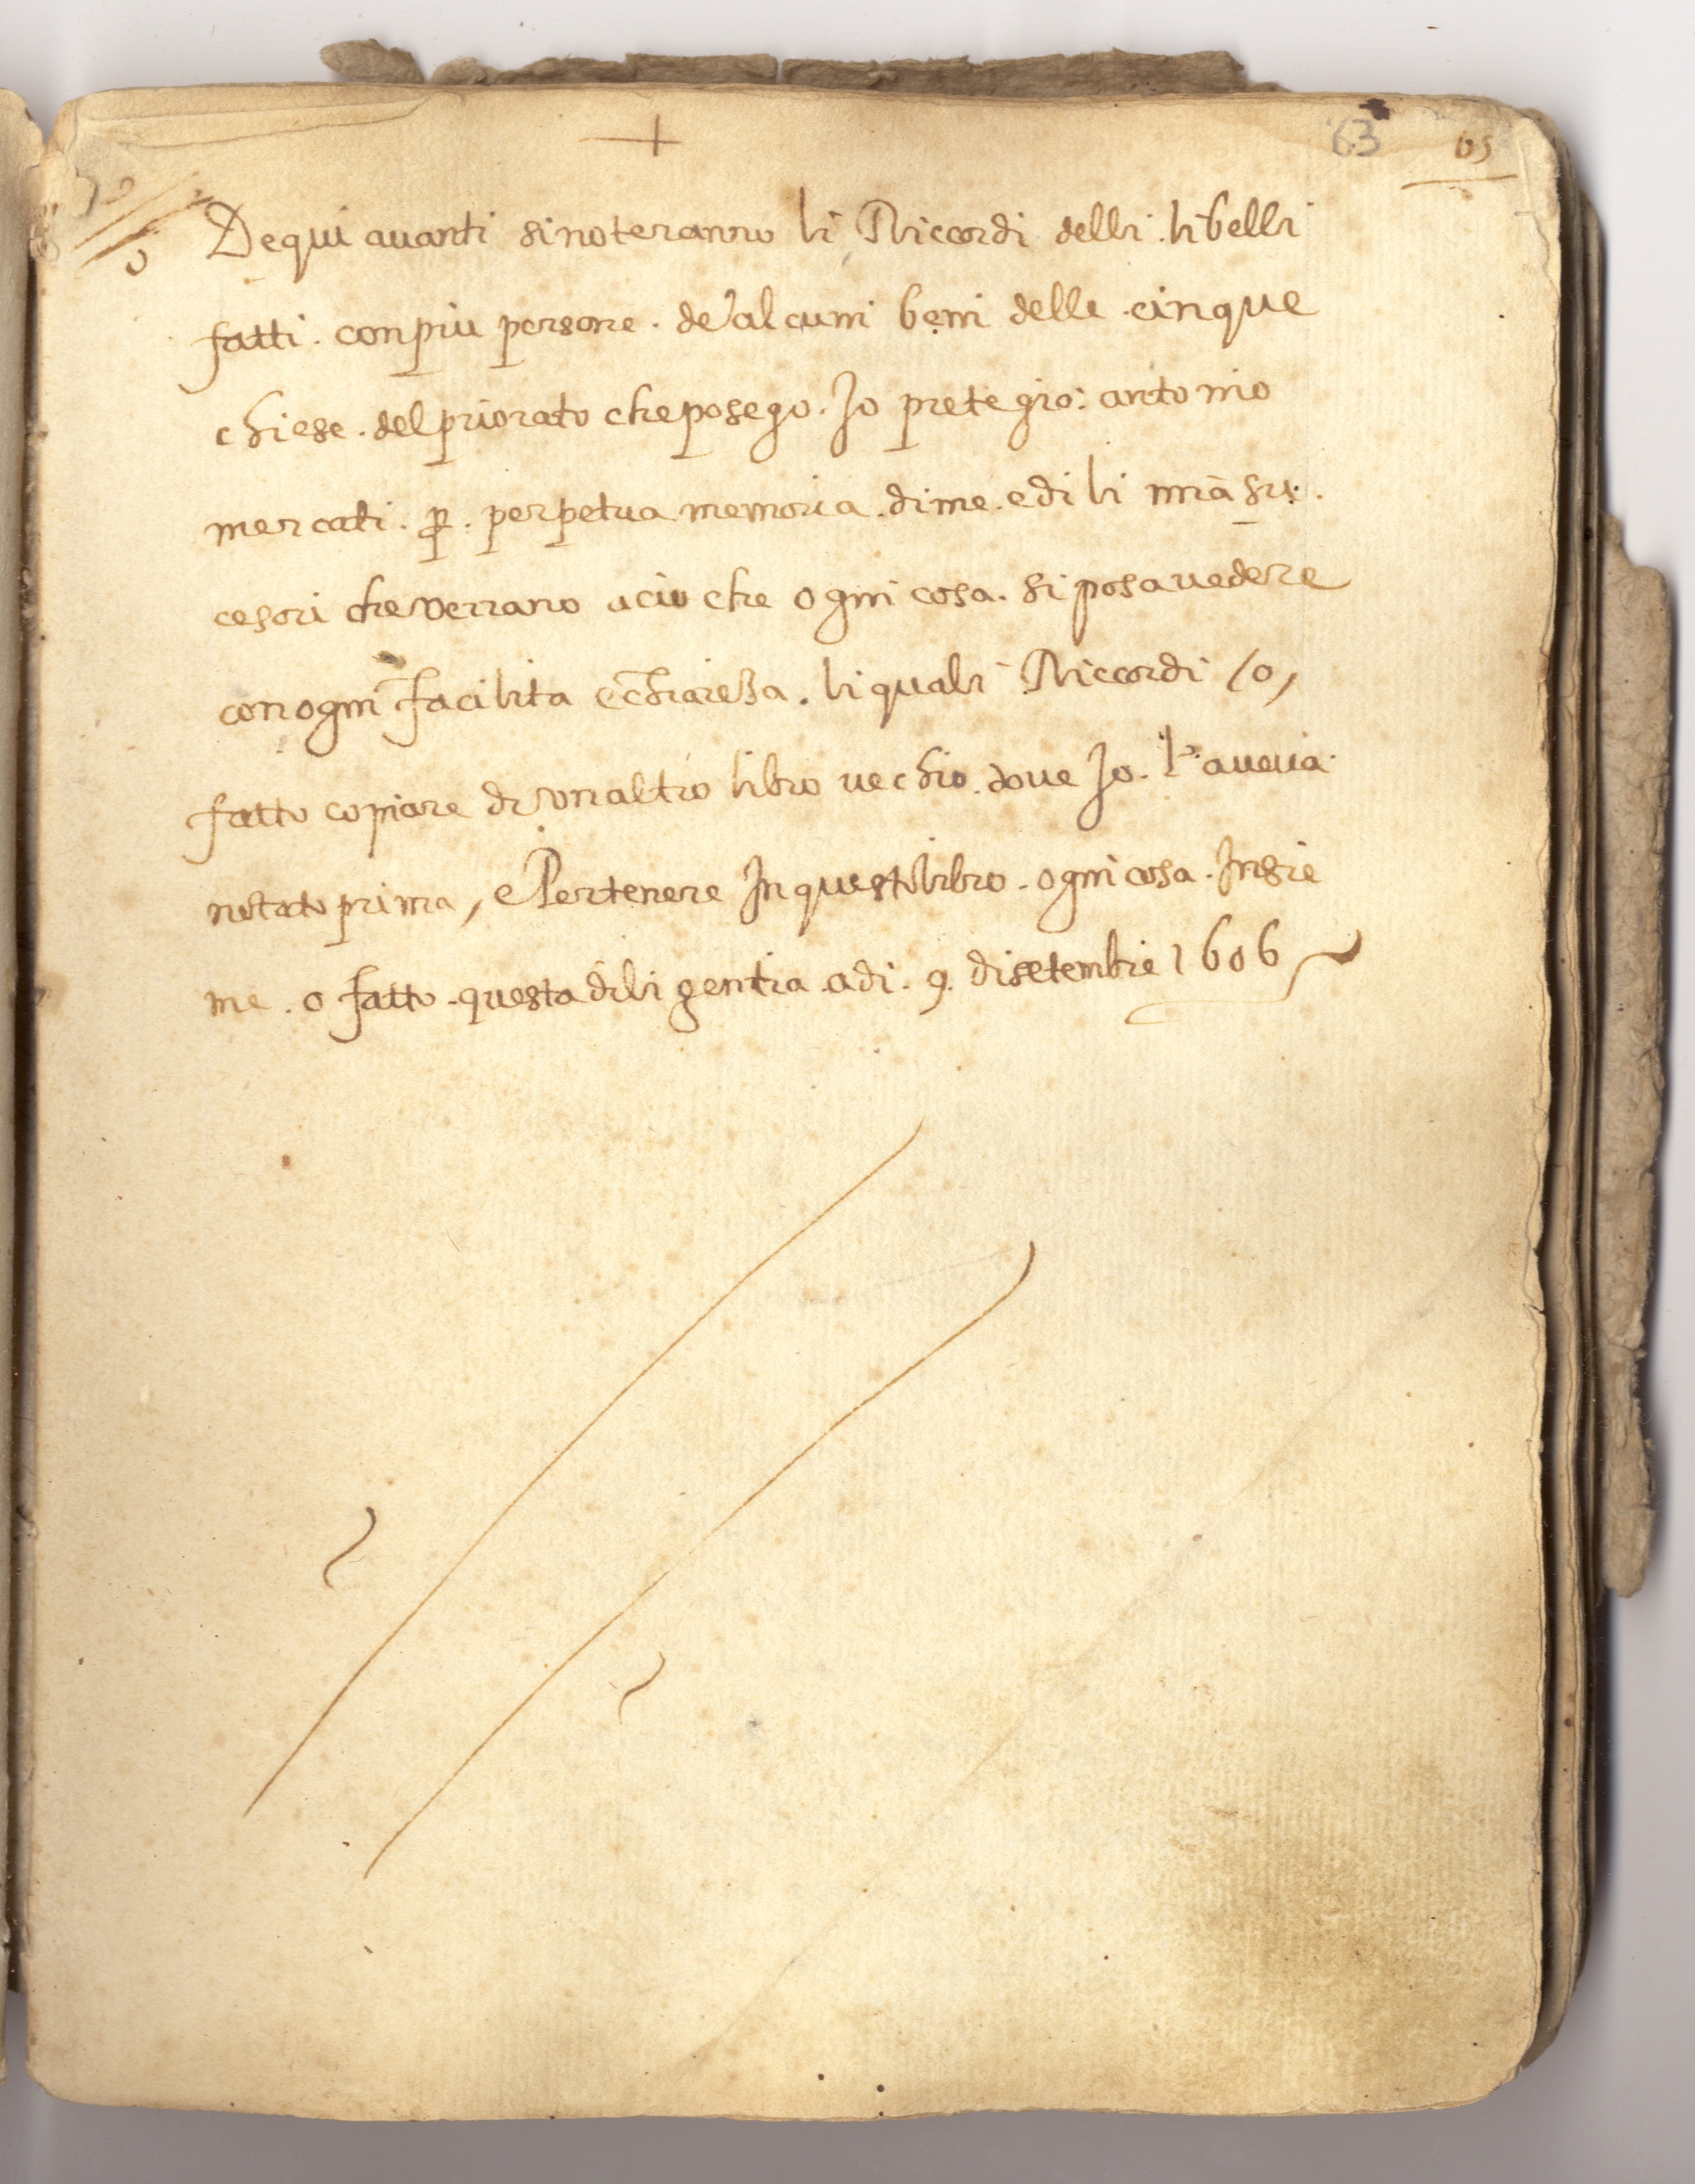 63 65
De qui auanti si noteranno li Riccordi delli libelli
fatti. con piu persone. de alcuni beni delle cinque
chiese. del priorato che posego. Io prete gio: antonio
mercati. p. perpetua memoria. di me. e di li mia su:
cesori che verrano acio che ogni cosa. si posa uedere
con ogni facilita e chiareza. li quali Riccordi lo,
fatto copiare di un altro libro uechio. doue Io. l'aueua
notato prima, e Per tenere In questo libro. ogni cosa. Insie
me. o fatto. questa diligentia adi. 9. di setembre 1606